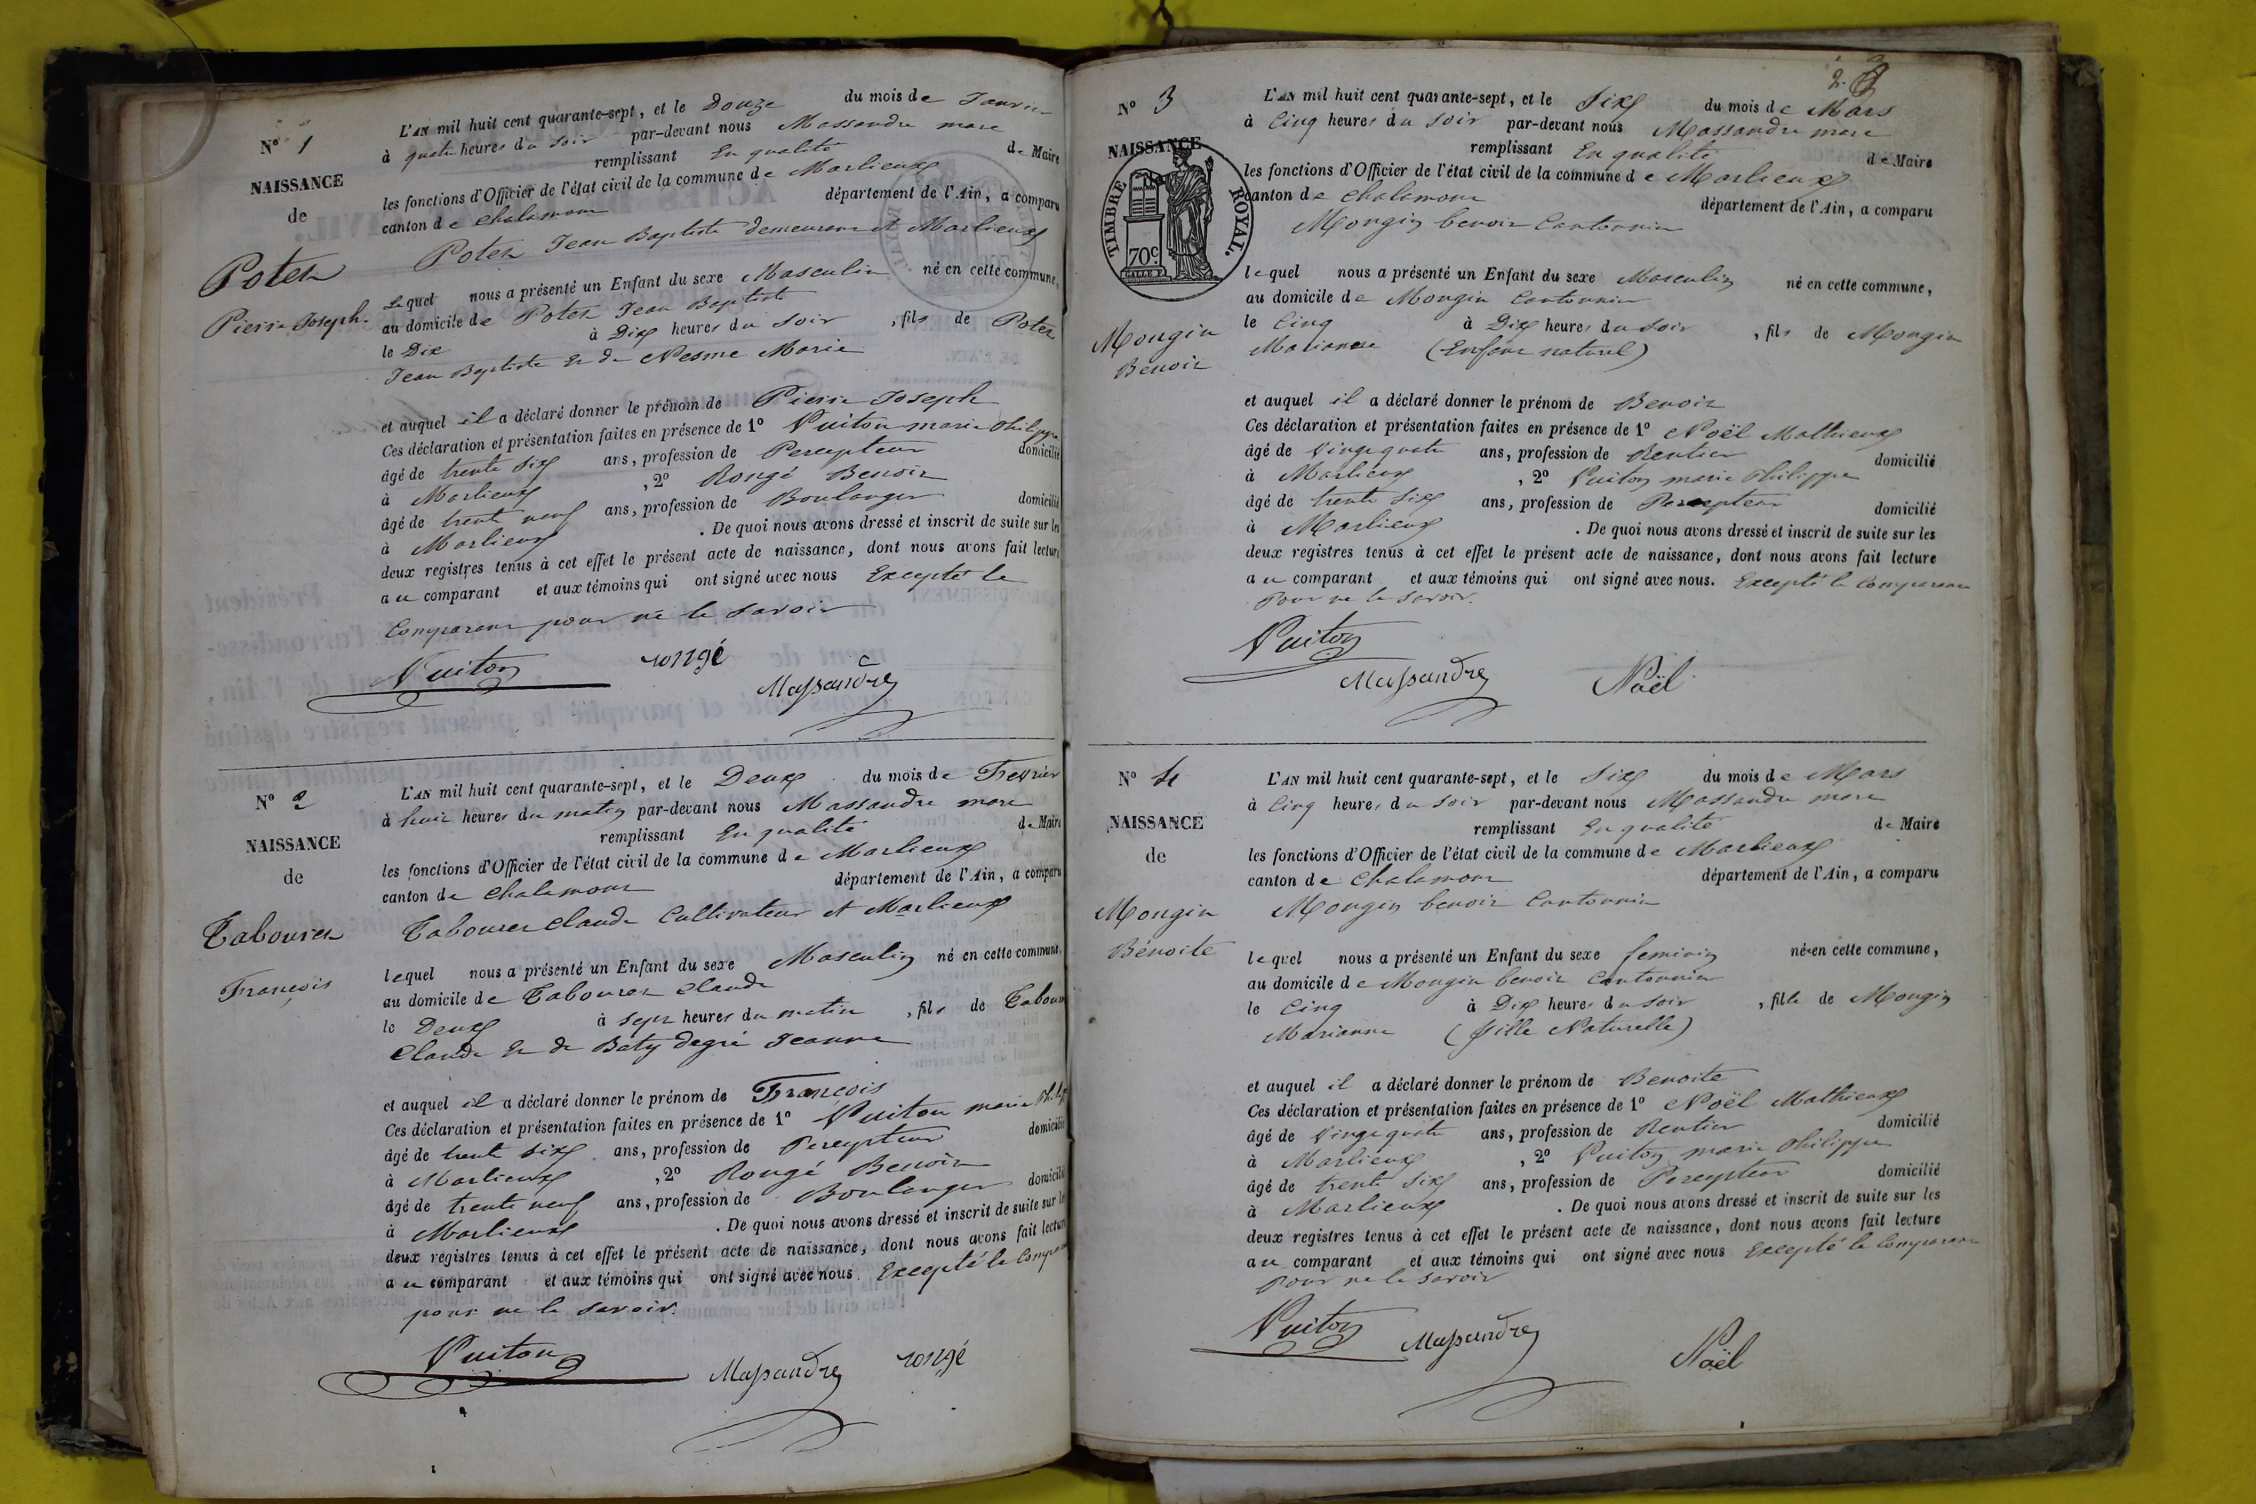 N° 1
NAISSANCE
de
Poten
Pierre Joseph.
L'AN mil huit cent quarante-sept, et le Douze du mois de Janvier
à quatre heures du soir par-devant nous Massandre marc
remplissant En qualité de Maire
les fonctions d'Officier de l'état civil de la commune de Marlieux
canton de Chalamont département de l'Ain, a comparu
Poten Jean Baptiste demeurant et Marlieux
Lequel nous a présenté un Enfant du sexe Masculin né en cette commune,
au domicile de Poten Jean Baptiste
le Dix à Dix heures du soir, fils de Poten
Jean Baptiste Et de Nesme Marie
et auquel il a déclaré donner le prénom de Pierre Joseph
Ces déclaration et présentation faites en présence de 1° Vuiton marie philippe
âgé de trente six ans, profession de Percepteur domicilié
à Marlieux, 2° Rongé Benoit
âgé de trente neuf ans, profession de Boulanger domicilié
à Marlieux. De quoi nous avons dressé et inscrit de suite sur les
deux registres tenus à cet effet le présent acte de naissance, dont nous avons fait lecture
au comparant et aux témoins qui ont signé avec nous Excepté le
Comparant pour ne le savoir
Vuiton rongé
Massandre
N° 2
NAISSANCE
de
Tabouret
François
L'AN mil huit cent quarante-sept, et le Deux du mois de Fevrier
à huit heures du matin par-devant nous Massandre marc
remplissant En qualité de Maire
les fonctions d'Officier de l'état civil de la commune de Marlieux
canton de Chalamont département de l'Ain, a comparu
Tabouret Claude Cultivateur et Marlieux
lequel nous a présenté un Enfant du sexe Masculin né en cette commune,
au domicile de Tabouret Claude
le Deux à sept heures du matin, fils de Tabouret
Claude Et de Baty degré Jeanne
et auquel il a déclaré donner le prénom de François
Ces déclaration et présentation faites en présence de 1° Vuiton marie
âgé de trente six ans, profession de Percepteur domicilié
à Marlieux, 2° Rongé Benoit
âgé de trente neuf ans, profession de Boulanger domicilié
à Marlieux. De quoi nous avons dressé et inscrit de suite sur les
deux registres tenus à cet effet le présent acte de naissance, dont nous avons fait lecture
au comparant et aux témoins qui ont signé avec nous. Excepté le Comparant
pour ne le savoir.
Vuiton Massandre rongé
2.
N° 3
NAISSANCE
TIMBRE ROYAL.
70c.
Mongin
Benoit
L'AN mil huit cent quarante-sept, et le Six du mois de Mars
à Cinq heures du soir par-devant nous Massandre marc
remplissant En qualité de Maire
les fonctions d'Officier de l'état civil de la commune de Marlieux
canton de Chalamont département de l'Ain, a comparu
Mongin benoit Cantonnier
lequel nous a présenté un Enfant du sexe Masculin né en cette commune,
au domicile de Mongin Cantonnier
le Cinq à Dix heures du soir, fils de Mongin
Marianne (Enfant naturel)
et auquel il a déclaré donner le prénom de Benoit
Ces déclaration et présentation faites en présence de 1° Noël Mathieux
âgé de Vingt quatre ans, profession de Rentier domicilié
à Marlieux, 2° Vuiton marie Philippe
âgé de trente six ans, profession de Percepteur domicilié
à Marlieux. De quoi nous avons dressé et inscrit de suite sur les
deux registres tenus à cet effet le présent acte de naissance, dont nous avons fait lecture
au comparant et aux témoins qui ont signé avec nous. Excepté le Comparant
Pour ne le savoir.
Vuiton
Massandre Noël
N° 4
NAISSANCE
de
Mongin
Bénoite
L'AN mil huit cent quarante-sept, et le Six du mois de Mars
à Cinq heures du soir par-devant nous Massandre marc
remplissant En qualité de Maire
les fonctions d'Officier de l'état civil de la commune de Marlieux
canton de Chalamont département de l'Ain, a comparu
Mongin benoit Cantonnier
lequel nous a présenté un Enfant du sexe feminin né en cette commune,
au domicile de Mongin benoit Cantonnier
le Cinq à Dix heures du soir, fille de Mongin
Marianne (fille Naturelle)
et auquel il a déclaré donner le prénom de Benoite
Ces déclaration et présentation faites en présence de 1° Noël Mathieux
âgé de Vingt quatre ans, profession de Rentier domicilié
à Marlieux, 2° Vuiton marie Philippe
âgé de trente six ans, profession de Percepteur domicilié
à Marlieux. De quoi nous avons dressé et inscrit de suite sur les
deux registres tenus à cet effet le présent acte de naissance, dont nous avons fait lecture
au comparant et aux témoins qui ont signé avec nous Excepté le Comparant
pour ne le savoir
Vuiton Massandre
Noël